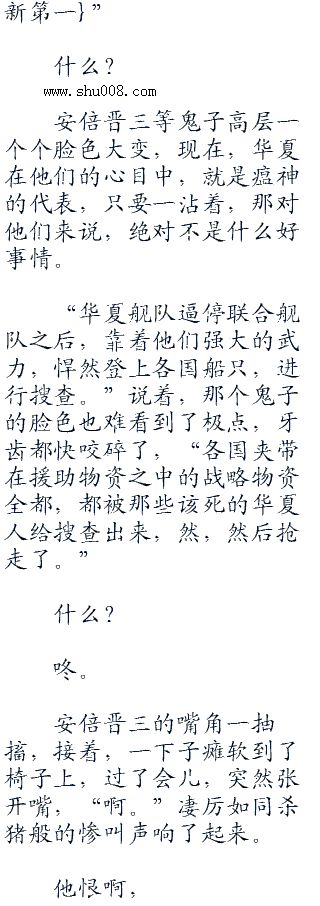 新第一}”
什么？
www.shu008.com
安倍晋三等鬼子高层一
个个脸色大变，现在，华夏
在他们的心目中，就是瘟神
的代表，只要一沾着，那对
他们来说，绝对不是什么好
事情。
“华夏舰队逼停联合舰
队之后，靠着他们强大的武
力，悍然登上各国船只，进
行搜查。”说着，那个鬼子
的脸色也难看到了极点，牙
齿都快咬碎了，“各国夹带
在援助物资之中的战略物资
全都，都被那些该死的华夏
人给搜查出来，然，然后抢
走了。”
什么？
咚。
安倍晋三的嘴角一抽
搐，接着，一下子瘫软到了
椅子上，过了会儿，突然张
开嘴，“啊。”凄厉如同杀
猪般的惨叫声响了起来。
他恨啊，